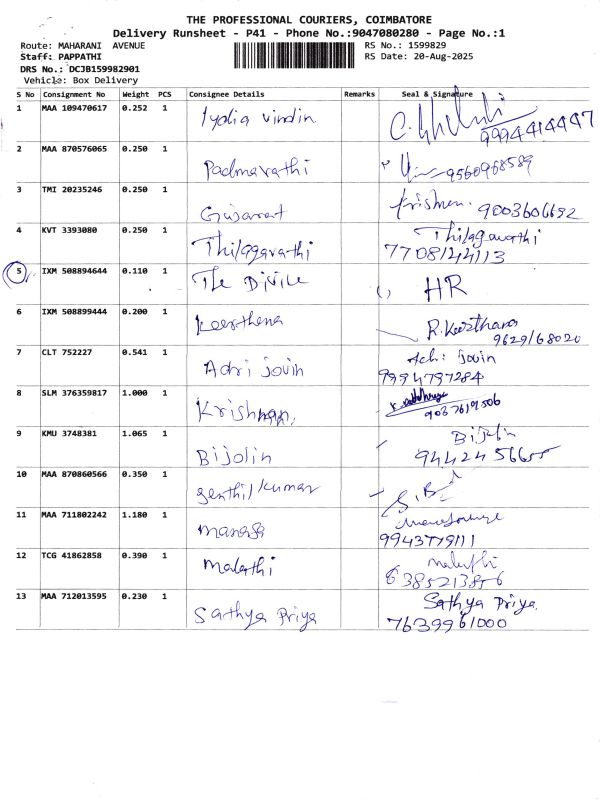 THE PROFESSIONAL COURIERS, COIMBATORE
Delivery Runsheet - P41 - Phone No.:9047080280 - Page No.:1
Route: MAHARANI AVENUE
RS No.: 1599829
Staff: PAPPATHI
RS Date: 20-Aug-2025
DRS No.: DCJB159982901
Vehicle: Box Delivery
S No Consignment No Weight PCS Consignee Details Remarks Seal & Signature
1 MAA 109470617 0.252 1 Lydia vindin
9994414447
2 MAA 870576065 0.250 1 Padmavathi 9560968589
3 TMI 20235246 0.250 1 Gujarat Krishnen. 9003606692
4 KVT 3393080 0.250 1 Thilagavathi Thilagavathi
7708144113
5 IXM 508894644 0.110 1 The Divine HR
6 IXM 508899444 0.200 1 Keerthena R. Keerthana
9629168020
7 CLT 752227 0.541 1 Adri jovin Adri jovin
9994797284
8 SLM 376359817 1.000 1 Krishnan,
9037619506
9 KMU 3748381 1.065 1 Bijolin Bijolin
9442456655
10 MAA 870860566 0.350 1 Senthil kumar
11 MAA 711802242 1.180 1 manasa
9943779111
12 TCG 41862858 0.390 1 Malathi malathi
6385213856
13 MAA 712013595 0.230 1 Sathya Priya Sathya Priya
7639961000